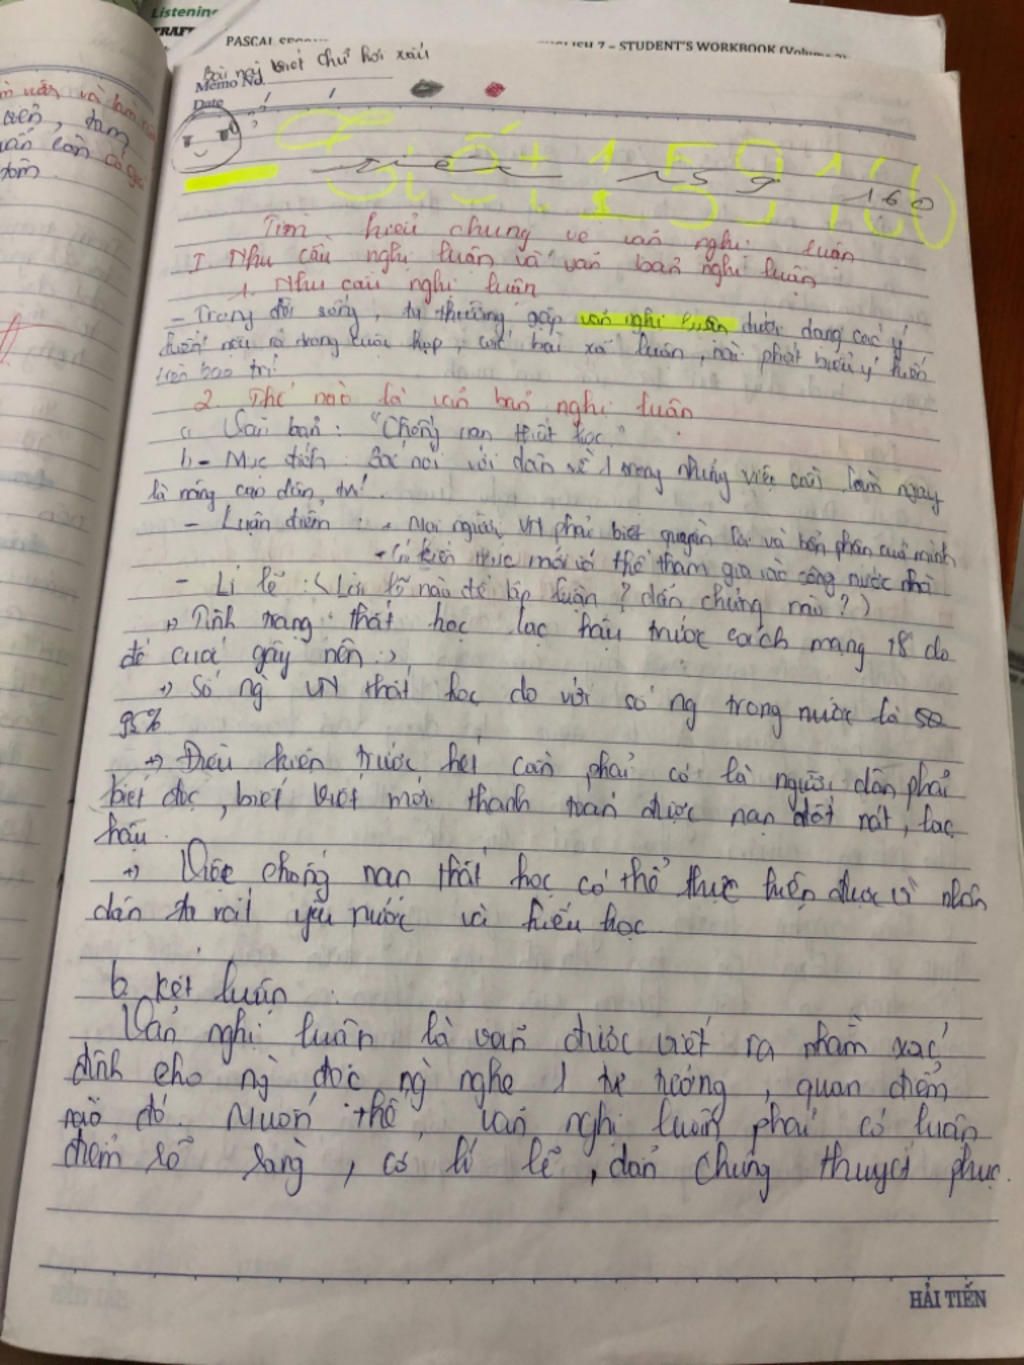 Listening
PASCAL
ENGLISH 7 – STUDENT'S WORKBOOK
Bài này viết chữ hơi xấu
Memo No.
Date
Tiết 159 160
Tìm hiểu chung về văn nghị luận
I. Nhu cầu nghị luận và văn bản nghị luận
1. Nhu cầu nghị luận
- Trong đời sống, ta thường gặp văn nghị luận dưới dạng các ý
kiến nêu ra trong cuộc họp, các bài xã luận, bài phát biểu ý kiến
trên báo trí
2. Thế nào là văn bản nghị luận
a Văn bản: "Chống nạn thất học"
b - Mục đích: Bác nói với dân về 1 trong những việc cần làm ngay
là nâng cao dân trí.
- Luận điểm: + Mọi người VN phải biết quyền lợi và bổn phận của mình
+ Có kiến thức mới có thể tham gia vào công nước nhà
- Lí lẽ: (Lời lẽ nào để lập luận? dẫn chứng nào?)
→ Tình trạng thất học lạc hậu trước cách mạng T8 do
đế quốc gây nên
→ Số ng VN thất học so với số ng trong nước là
95%
→ Điều kiện trước hết cần phải có là người dân phải
biết đọc, biết viết mới thanh toán được nạn dốt nát, lạc
hậu.
→ Việc chống nạn thất học có thể thực hiện được vì nhân
dân ta rất yêu nước và hiếu học
b. Kết luận:
Văn nghị luận là văn được viết ra nhằm xác
định cho ng đọc, ng nghe 1 tư tưởng, quan điểm
nào đó. Muốn thế, văn nghị luận phải có luận
điểm rõ ràng, có lí lẽ, dẫn chứng thuyết phục.
HẢI TIẾN